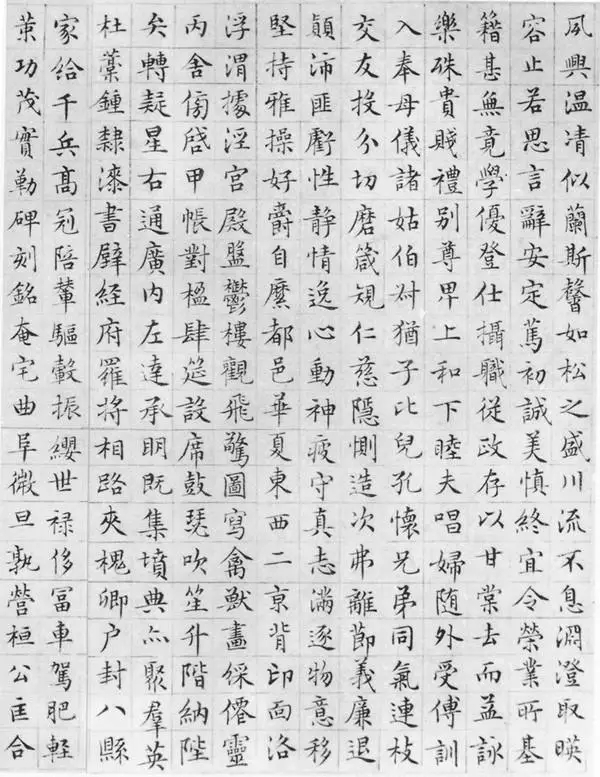 夙興温凊似蘭斯馨如松之盛川流不息淵澄取暎
容止若思言辭安定篤初誠美慎終宜令榮業所基
籍甚無竟學優登仕攝職從政存以甘棠去而益詠
樂殊貴賤禮別尊卑上和下睦夫唱婦随外受傅訓
入奉母儀諸姑伯叔猶子比兒孔懷兄弟同氣連枝
交友投分切磨箴規仁慈隱惻造次弗離節義廉退
顛沛匪虧性静情逸心動神疲守真志滿逐物意移
堅持雅操好爵自縻都邑華夏東西二京背邙面洛
浮渭據涇宮殿盤鬱樓觀飛驚圖寫禽獸畫綵僊靈
丙舍傍啓甲帳對楹肆筵設席鼓瑟吹笙升階納陛
弁轉疑星右通廣内左達承明既集墳典亦聚羣英
杜藁鍾隸漆書壁經府羅將相路夾槐卿户封八縣
家給千兵高冠陪輦驅轂振纓世禄侈冨車駕肥軽
茦功茂實勒碑刻銘奄宅曲阜微旦孰營桓公匡合